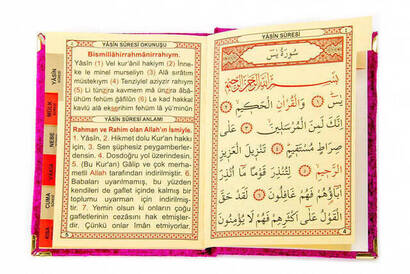 YÂSÎN SÛRESİ OKUNUŞU
Bismillâhirrahmânirrahîym.
Yâsîn (1) Vel kur'ânil hakiym (2) İnne-
ke le minel murseliyn (3) Alâ sırâtım
müstekıym (4) Tenziylel aziyzir rahiym
(5) Li tünzira kavmem mâ ünzira âbâ-
ühüm fehüm gâfilûn (6) Le kad hakkal
kavlü alâ ekserihim fehüm lâ yü'minûn
YÂSÎN SÛRESİ ANLAMI
Rahman ve Rahim olan Allah'ın İsmiyle.
1. Yâsîn, 2. Hikmet dolu Kur'an hakkı
için, 3. Sen şüphesiz peygamberler-
densin. 4. Dosdoğru yol üzerindesin.
5. (Bu Kur'an) Gâlip ve çok merha-
metli Allah tarafından indirilmiştir. 6.
Babaları uyarılmamış, bu yüzden
kendileri de gaflet içinde kalmış bir
toplumu uyarman için indirilmiş-
tir. 7. Yemin olsun ki onların çoğu
gafletlerinin cezasını hak etmişler-
dir. Çünkü onlar İman etmiyorlar.
YÂSÎN
MÜLK
NEBE
VAKIA
CUMA
KISA
YÂSÎN SÛRESİ
سُورَةُ يٰسٓ
بِسْمِ اللّٰهِ الرَّحْمٰنِ الرَّحِيمِ
يٰسٓ ﴿١﴾ وَالْقُرْاٰنِ الْحَكِيمِ ﴿٢﴾
اِنَّكَ لَمِنَ الْمُرْسَلِينَ ﴿٣﴾ عَلٰى
صِرَاطٍ مُسْتَقِيمٍ ﴿٤﴾ تَنْزِيلَ الْعَزِيزِ
الرَّحِيمِ ﴿٥﴾ لِتُنْذِرَ قَوْمًا مَٓا اُنْذِرَ
اٰبَٓاؤُهُمْ فَهُمْ غَافِلُونَ ﴿٦﴾ لَقَدْ حَقَّ
الْقَوْلُ عَلٰٓى اَكْثَرِهِمْ فَهُمْ لَا يُؤْمِنُونَ